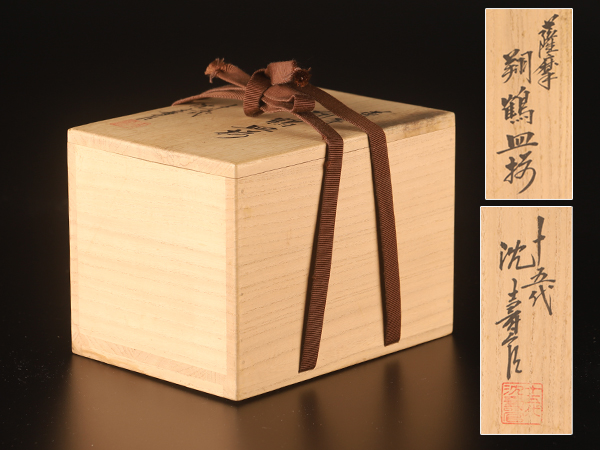 薩摩
翔鶴皿揃
十五代
沈壽官